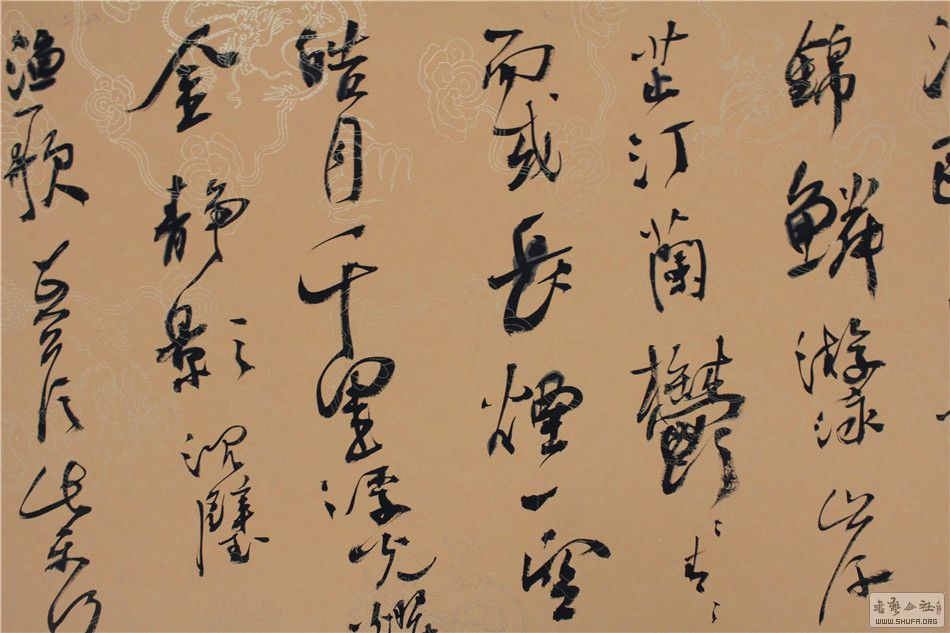 錦鱗游泳岸
芷汀蘭鬱〻青〻
而或長煙一空
皓月千里浮光躍
金靜影沉璧
漁歌互答此樂何
书艺公社
WWW.SHUFA.ORG